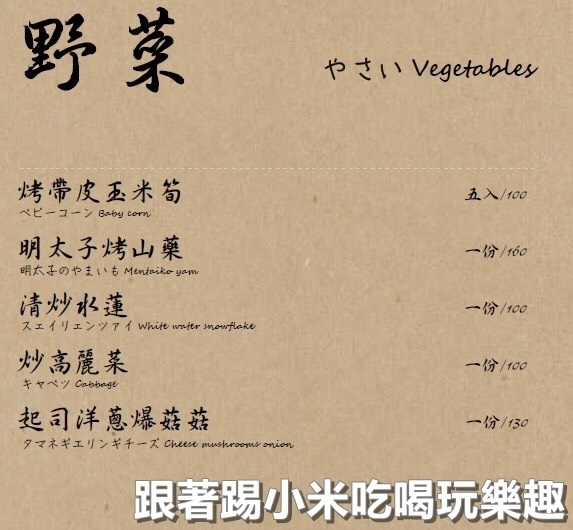 野菜
やさい Vegetables
烤帶皮玉米筍 五入/100
ベビーコーン Baby corn
明太子烤山藥 一份/160
明太子のやまいも Mentaiko yam
清炒水蓮 一份/100
スエイリエンツァイ White water snowflake
炒高麗菜 一份/100
キャベツ Cabbage
起司洋蔥爆菇菇 一份/130
タマネギエリンギチーズ Cheese mushrooms onion
跟著踢小米吃喝玩樂趣